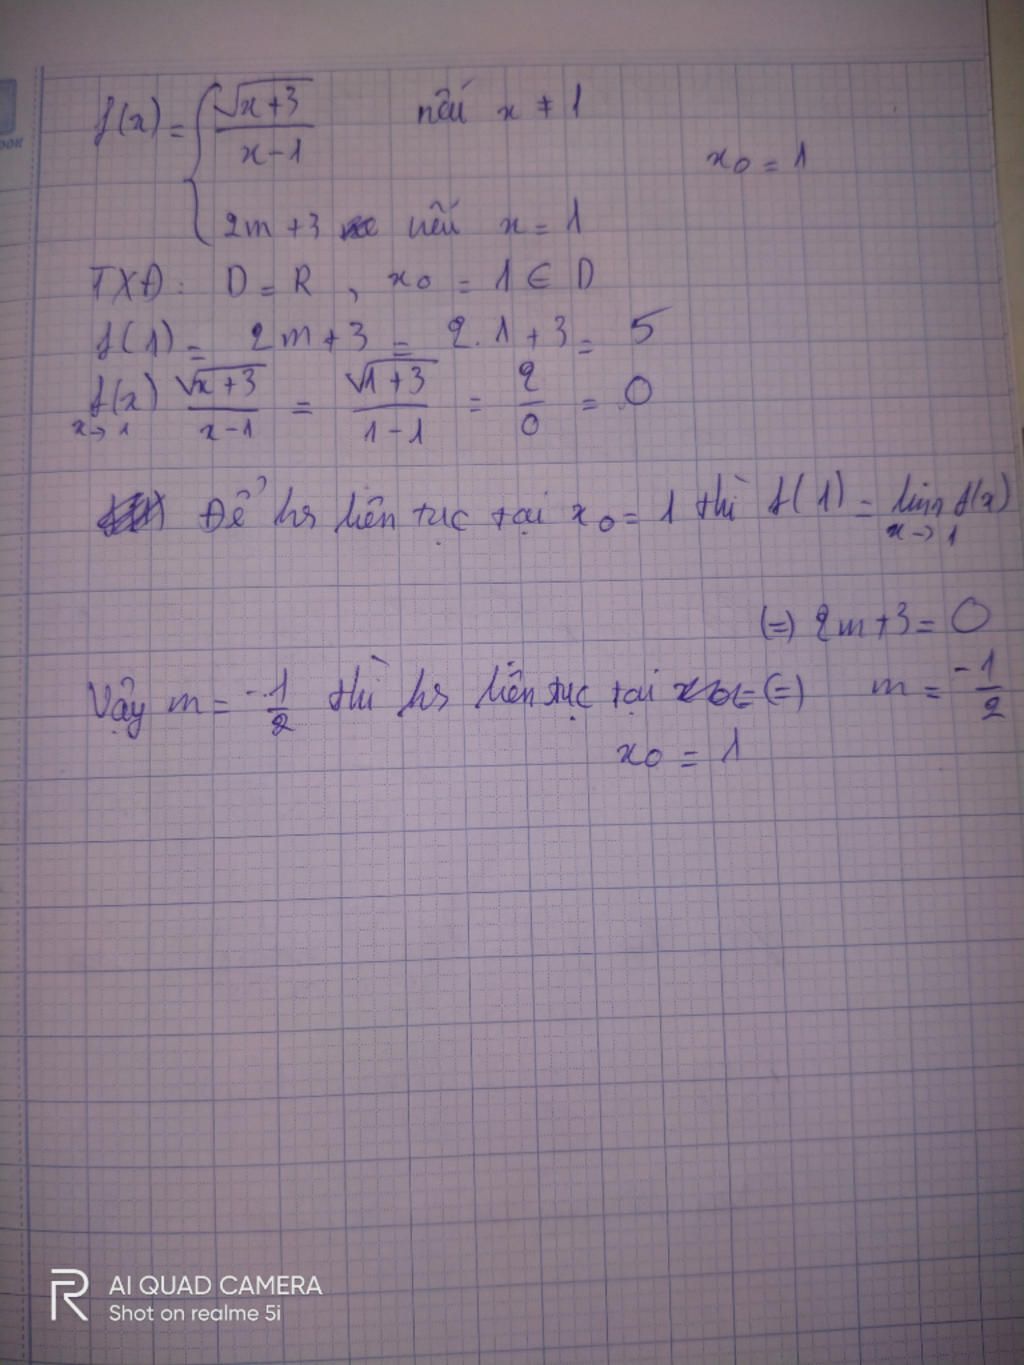 f(x) = { √(x+3) / (x-1) nếu x ≠ 1
x₀ = 1
2m+3 nếu x = 1
TXĐ: D = R , x₀ = 1 ∈ D
f(1) = 2m+3 = 2.1+3 = 5
f(x) x→1 √(x+3) / (x-1) = √(1+3) / (1-1) = 2/0 = 0
Để hs liên tục tại x₀ = 1 thì f(1) = lim x→1 f(x)
(=) 2m+3 = 0
Vậy m = -1/2 thì hs liên tục tại (=) m = -1/2
x₀ = 1
AI QUAD CAMERA
Shot on realme 5i